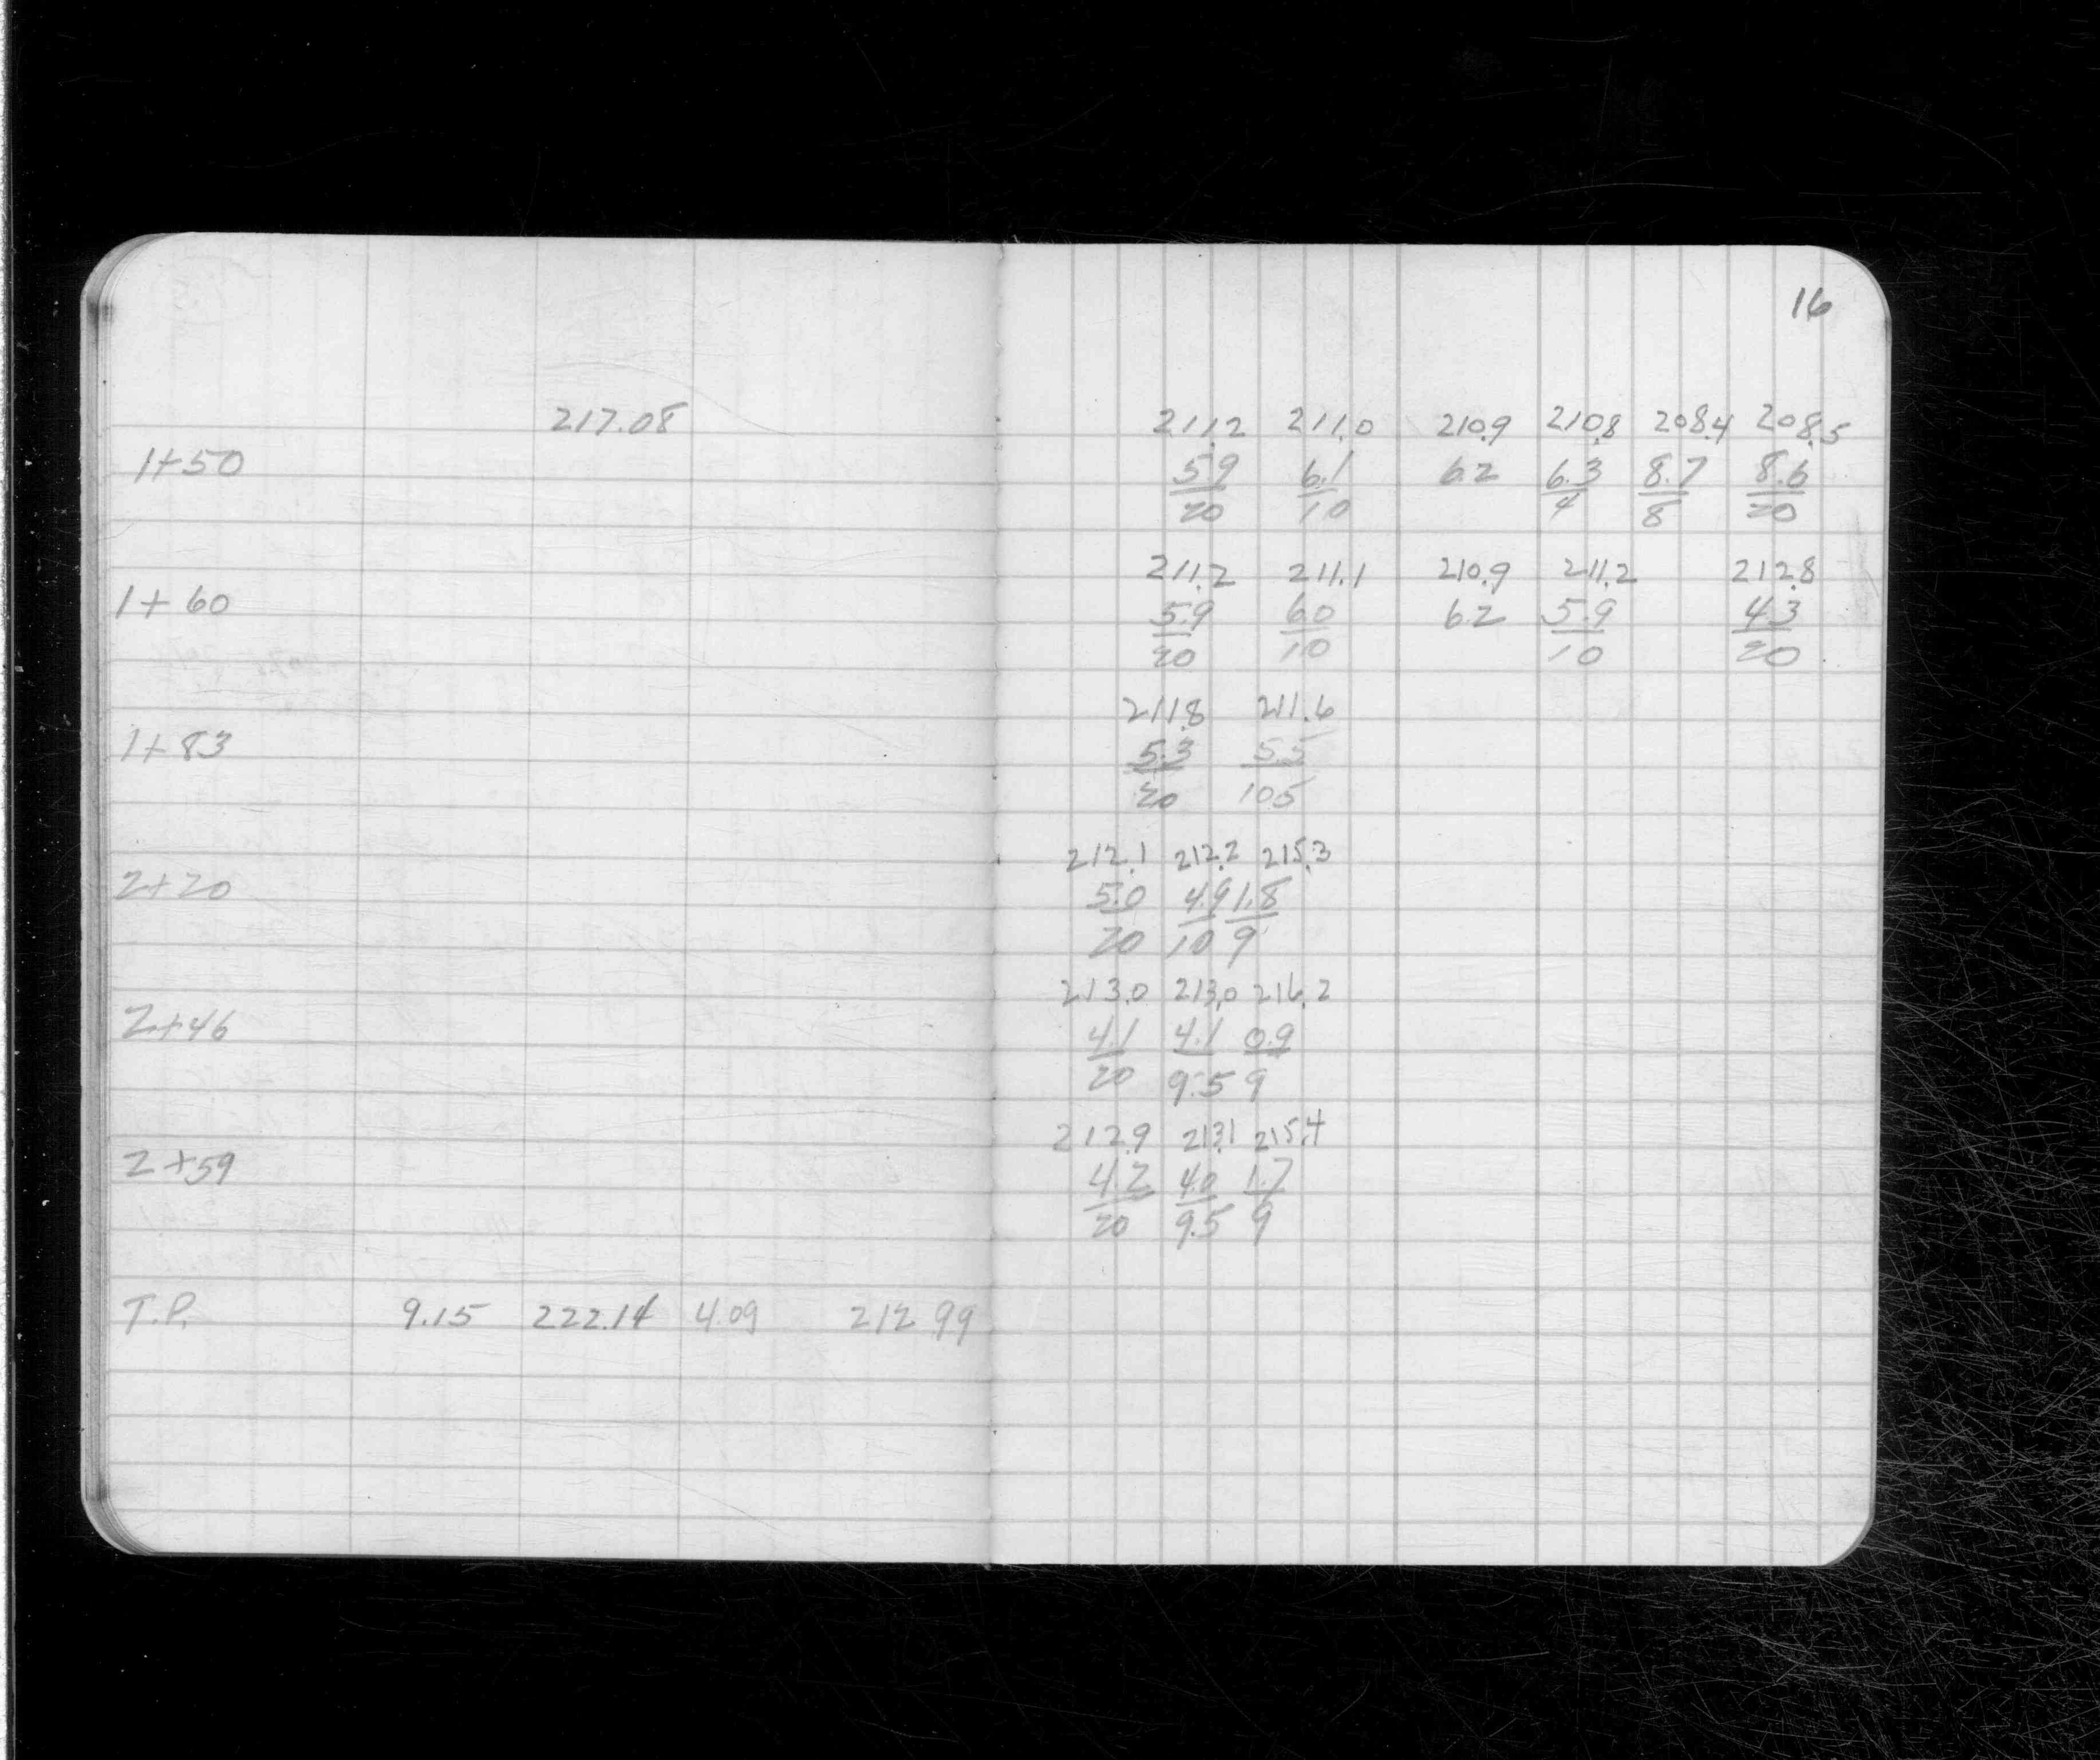 16
217.08 211.2 211.0 210.9 210.8 208.4 208.5
1+50 5.9 6.1 6.2 6.3 8.7 8.6
20 10 4 8 20
211.2 211.1 210.9 211.2 212.8
1+60 5.9 6.0 6.2 5.9 4.3
20 10 10 20
211.8 211.6
1+83 5.3 5.5
20 105
212.1 212.2 215.3
2+20 5.0 4.9 1.8
20 10 9
213.0 213.0 216.2
2+46 4.1 4.1 0.9
20 9.5 9
212.9 213.1 215.4
2+59 4.2 4.0 1.7
20 9.5 9
T.P. 9.15 222.14 4.09 212.99